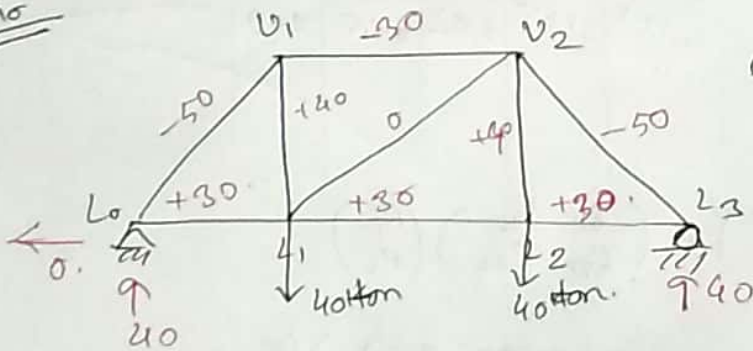 U1 -30 U2
-50 +40 0 +40 -50
L0 +30 +30 +30. L3
0. L1 L2
40 ton 40 ton. 40
40